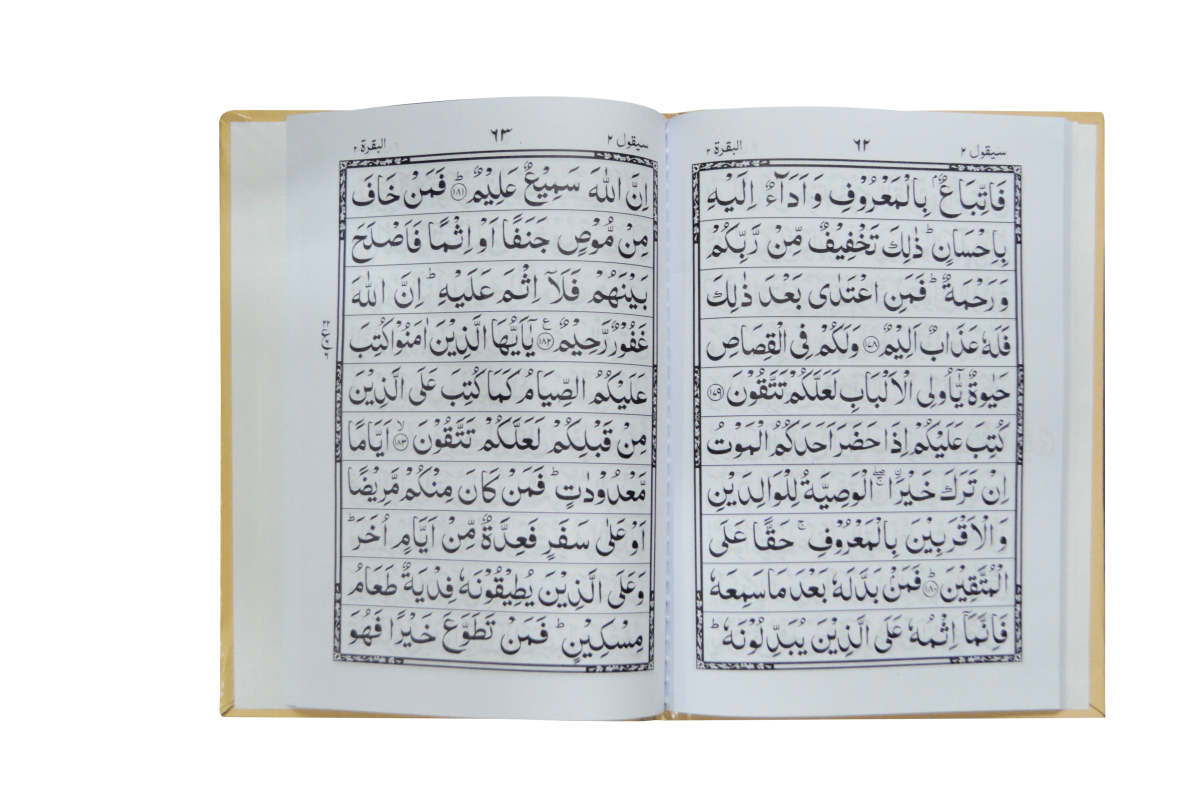 سيقول ٢
٦٢
البقرة ٢
فَاتِّبَاعٌۢ بِالْمَعْرُوْفِ وَ اَدَآءٌ اِلَيْهِ
بِاِحْسَانٍ ؕ ذٰلِكَ تَخْفِيْفٌ مِّنْ رَّبِّكُمْ
وَ رَحْمَةٌ ؕ فَمَنِ اعْتَدٰى بَعْدَ ذٰلِكَ
فَلَهٗ عَذَابٌ اَلِيْمٌ ﴿۱۷۸﴾ وَلَكُمْ فِى الْقِصَاصِ
حَيٰوةٌ يّٰۤاُولِى الْاَلْبَابِ لَعَلَّكُمْ تَتَّقُوْنَ ﴿۱۷۹﴾
كُتِبَ عَلَيْكُمْ اِذَا حَضَرَ اَحَدَكُمُ الْمَوْتُ
اِنْ تَرَكَ خَيْرَا ۖۚ اۨلْوَصِيَّةُ لِلْوَالِدَيْنِ
وَالْاَقْرَبِيْنَ بِالْمَعْرُوْفِ ۚ حَقًّا عَلَى
الْمُتَّقِيْنَ ﴿۱۸۰﴾ؕ فَمَنْۢ بَدَّلَهٗ بَعْدَ مَا سَمِعَهٗ
فَاِنَّمَاۤ اِثْمُهٗ عَلَى الَّذِيْنَ يُبَدِّلُوْنَهٗ ؕ
سيقول ٢
٦٣
البقرة ٢
اِنَّ اللّٰهَ سَمِيْعٌ عَلِيْمٌ ﴿۱۸۱﴾ؕ فَمَنْ خَافَ
مِنْ مُّوْصٍ جَنَفًا اَوْ اِثْمًا فَاَصْلَحَ
بَيْنَهُمْ فَلَاۤ اِثْمَ عَلَيْهِ ؕ اِنَّ اللّٰهَ
غَفُوْرٌ رَّحِيْمٌ ﴿۱۸۲﴾ع يٰۤاَيُّهَا الَّذِيْنَ اٰمَنُوْا كُتِبَ
عَلَيْكُمُ الصِّيَامُ كَمَا كُتِبَ عَلَى الَّذِيْنَ
مِنْ قَبْلِكُمْ لَعَلَّكُمْ تَتَّقُوْنَ ﴿۱۸۳﴾ۙ اَيَّامًا
مَّعْدُوْدٰتٍ ؕ فَمَنْ كَانَ مِنْكُمْ مَّرِيْضًا
اَوْ عَلٰى سَفَرٍ فَعِدَّةٌ مِّنْ اَيَّامٍ اُخَرَ ؕ
وَعَلَى الَّذِيْنَ يُطِيْقُوْنَهٗ فِدْيَةٌ طَعَامُ
مِسْكِيْنٍ ؕ فَمَنْ تَطَوَّعَ خَيْرًا فَهُوَ